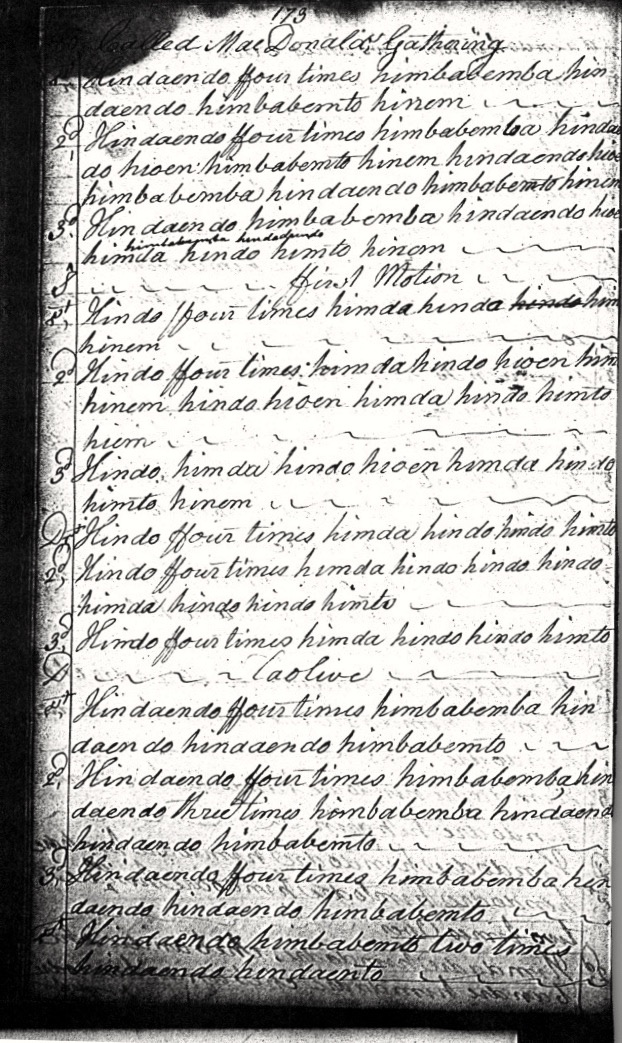 173
Called Mac Donald's Gathering
1 Hindaendo ffour times himbabemba hin
daendo himbabemto hinem
2d Hindaendo ffour times himbabemba hindaen
do hioen himbabemto hinem hindaendo hioen
himbabemba hindaendo himbabemto hinem
3d Hindaendo himbabemba hindaendo hioen
himbabemba hindaendo
himda hindo himto hinem
ffirst Motion
1st Hindo ffour times himda hinda hindo him
hinem
2d Hindo ffour times himda hindo hioen him
hinem hindo hioen himda hindo himto
hiem
3d Hindo himda hindo hioen himda hindo
himto hinem
Hindo ffour times himda hindo hindo himto
2d Hindo ffour times himda hindo hindo hindo
himda hindo hindo himto
3d Hindo ffour times himda hindo hindo himto
D Taolive
1st Hindaendo ffour times himbabemba hin
daendo hindaendo himbabemto
2d Hindaendo ffour times himbabemba hin
daendo three times himbabemba hindaendo
hindaendo himbabemto
3d Hindaendo ffour times himbabemba hin
daendo hindaendo himbabemto
Hindaendo himbabemto two times
hindaendo hindaento